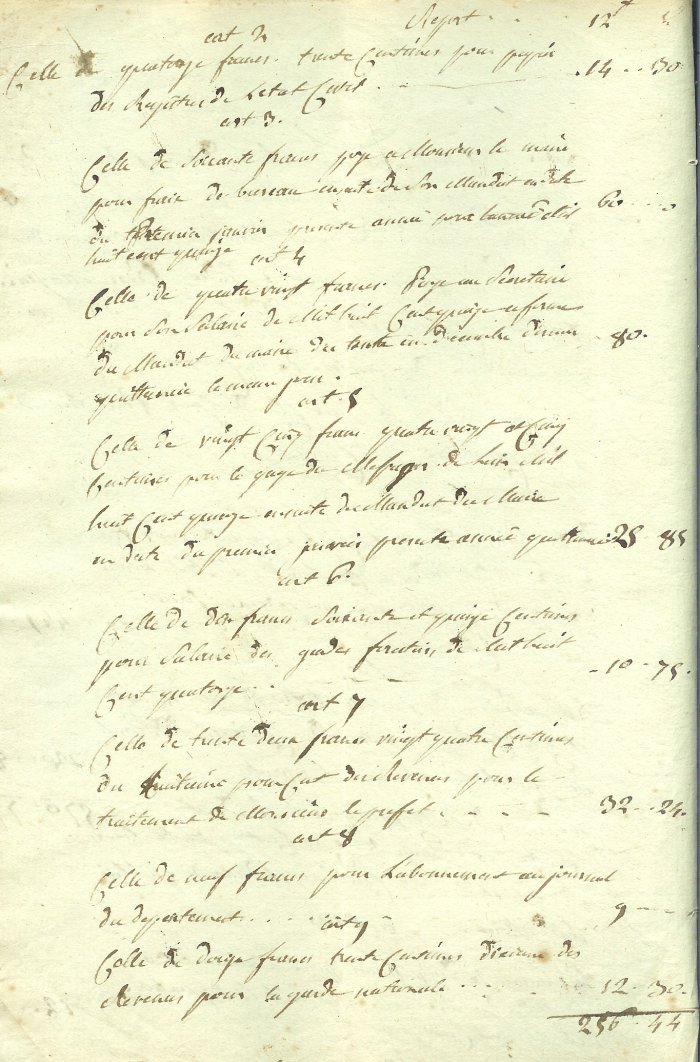 Report . . 12 f
art 2
Celle de quatorze francs trente Centimes pour papier
des Registres de Letat Civil . . 14 . . 30
art 3.
Celle de Soixante francs paye a Monsieur le maire
pour frais de bureau ensuite de Son Mandat en date
du premier janvier presente année pour lannée mil 60
huit cent quinze
art 4
Celle de quatre vingt francs. Paye au Secretaire
pour Son Salaire de Mil huit Cent quinze
du Mandat du maire du trente un decembre dernier 80.
quittancé le meme jour.
art 5
Celle de vingt Cinq francs quatre vingt et Cinq
Centimes pour le gage du Messager de Mil
huit Cent quinze ensuite du Mandat du Maire
en date du premier janvier presente année quittancé 25 85
art 6.
Celle de dix francs Soixante et quinze Centimes
pour Salaire des gardes forestiers de Mil huit
Cent quatorze . . - 10 - 75.
art 7
Celle de trente deux francs vingt quatre Centimes
du huitieme pour Cent des Revenus pour le
traitement de Monsieur le prefet . - - - 32 . . 24.
art 8
Celle de neuf francs pour Labonnement au journal
du departement . . . . 9 - - -
art 9
Celle de douze francs trente Centimes dixieme des
Revenus pour la garde nationale . . . 12 . 30.
256 . 44